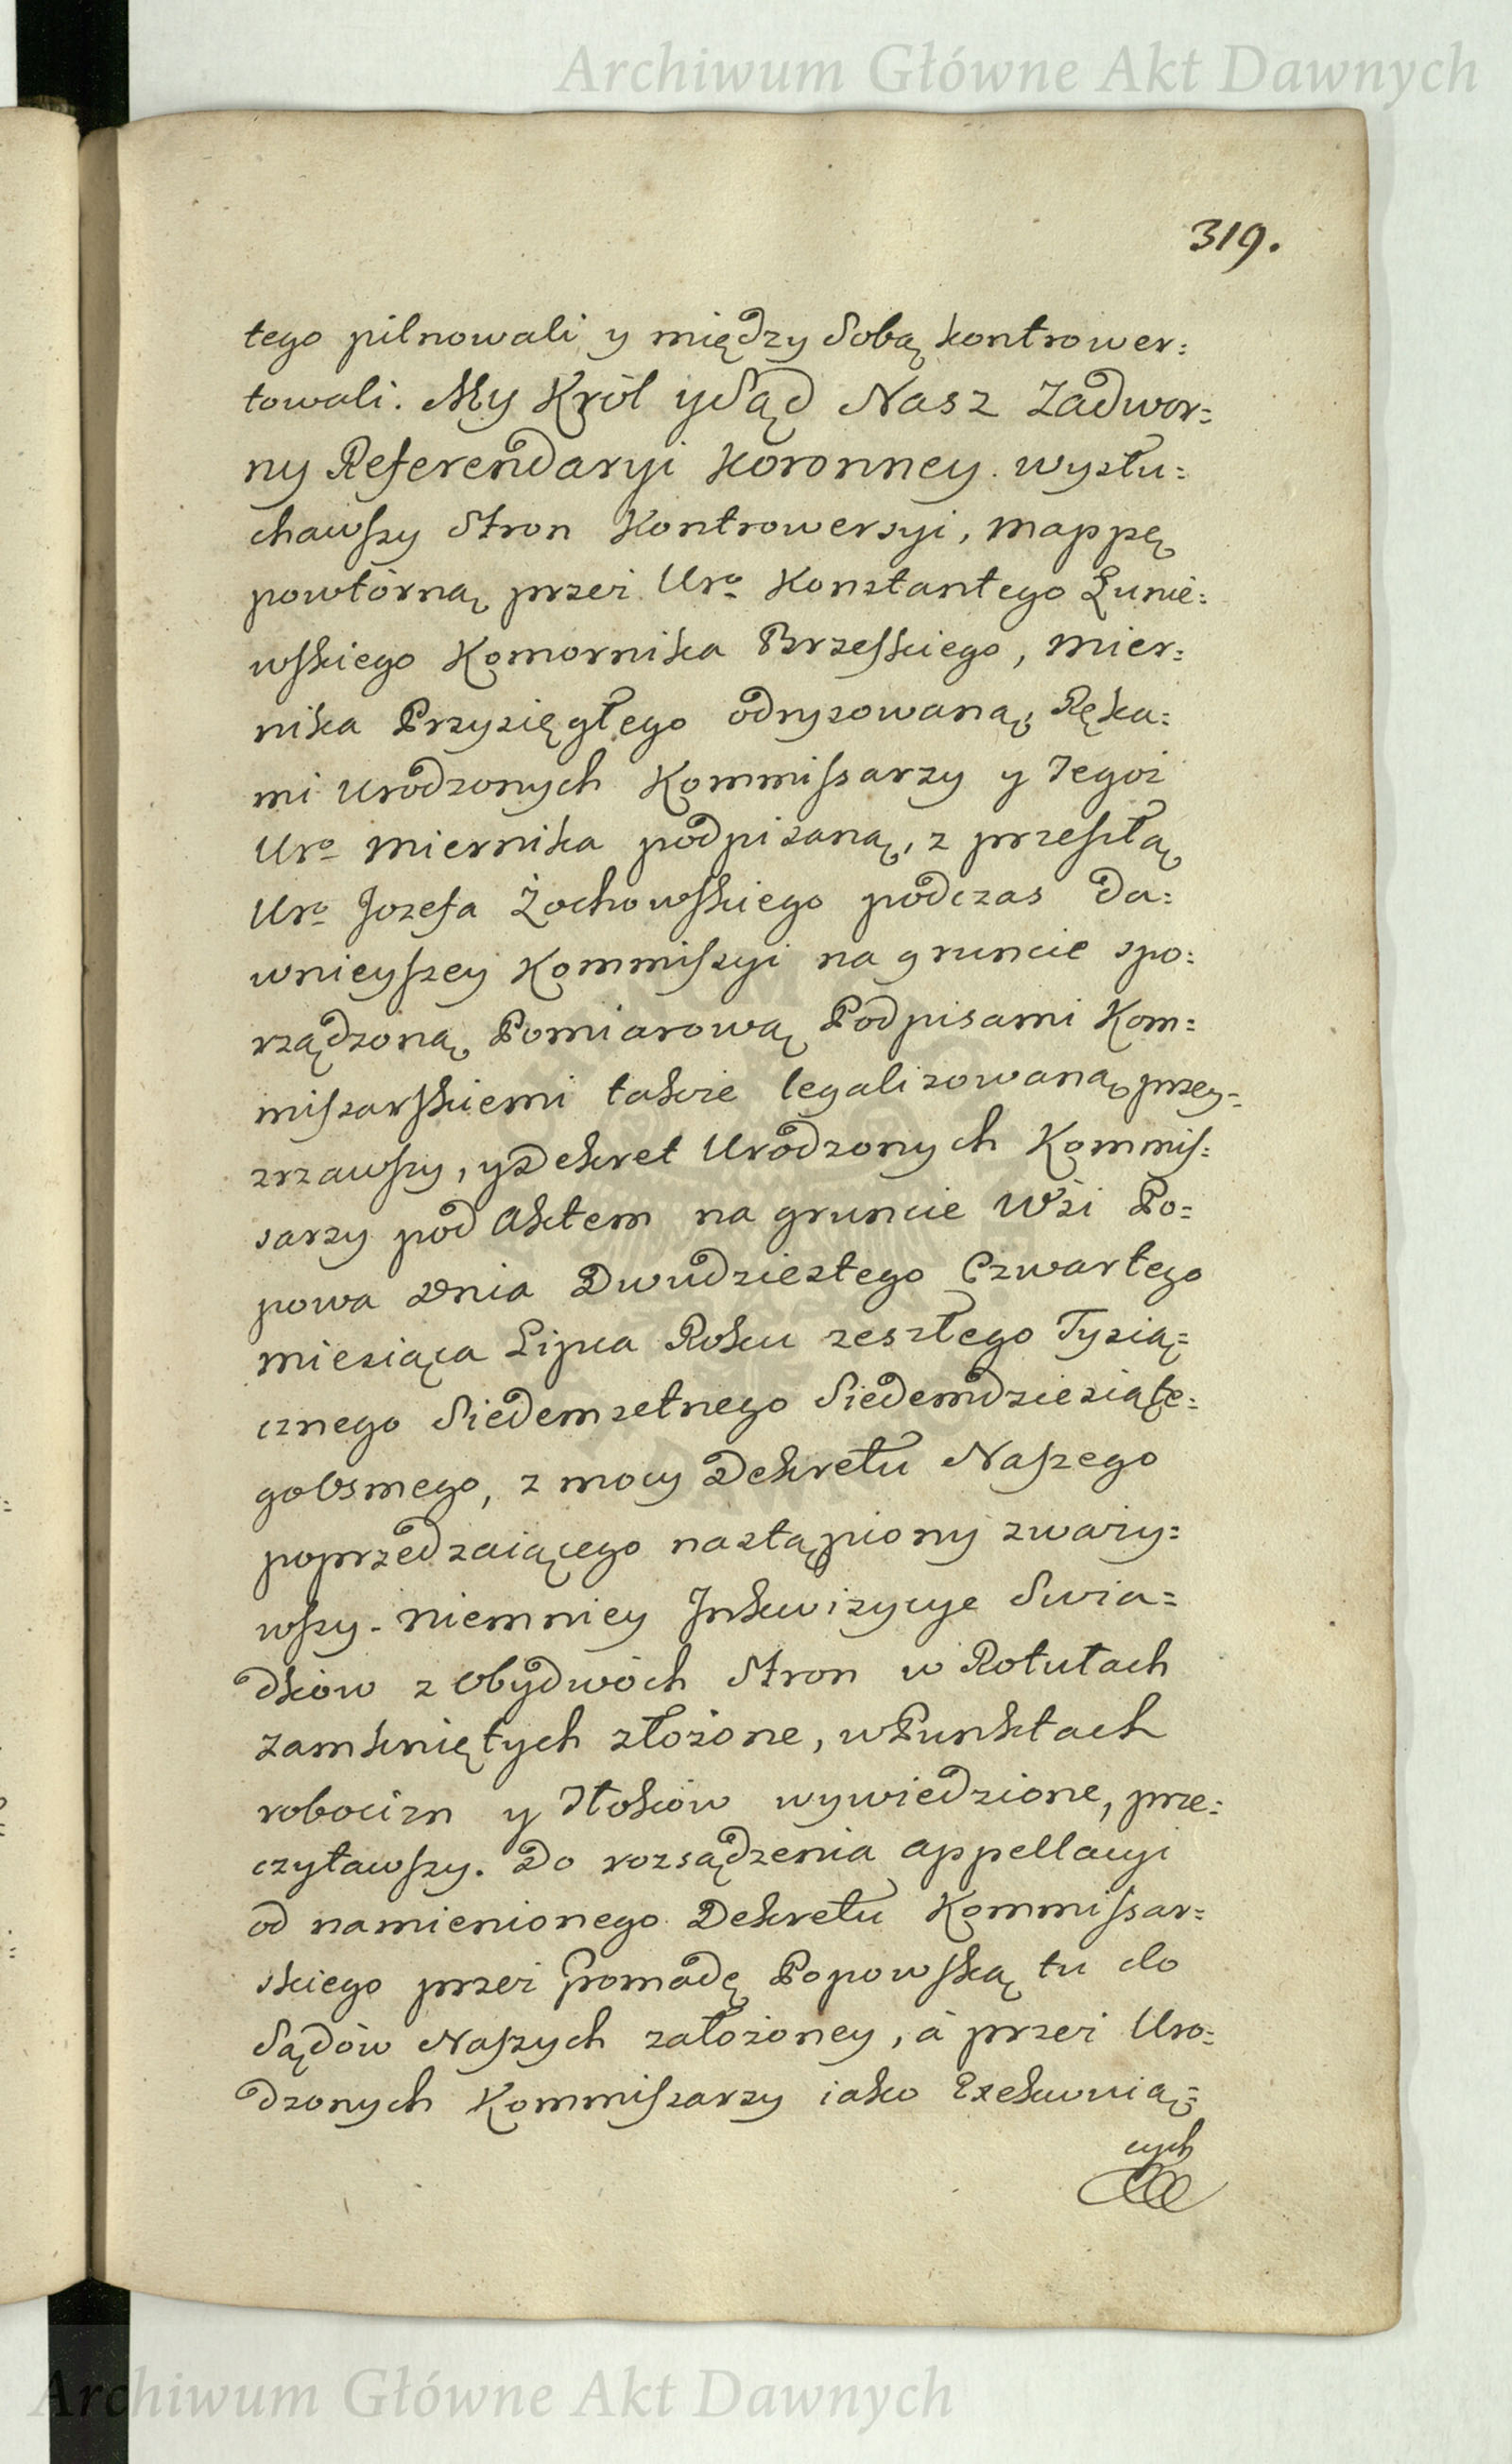 Archiwum Główne Akt Dawnych
319.
tego pilnowali y między Sobą kontrower:
towali. My Król y Sąd Nasz Zadwor:
ny Referendaryi Koronney. wysłu:
chawszy Stron Kontrowersyi, mappę
powtórną przez Uro Konstantego Łunie:
wskiego Komornika Brzeskiego, mier:
nika Przysięgłego odrysowaną, Ręka:
mi Urodzonych Kommissarzy y Tegoż
Uro miernika podpisaną, z przeszłą
Uro Jozefa Żochowskiego podczas Da:
wnieyszey Kommissyi na gruncie spo:
rządzoną Pomiarową Podpisami Kom:
missarskiemi także legalizowaną przey:
zrzawszy, y Dekret Urodzonych Kommis:
sarzy pod Aktem na gruncie Wsi Po:
powa Dnia Dwudziestego Czwartego
miesiąca Lipca Roku zeszłego Tysią:
cznego Siedemsetnego Siedemdziesiąte:
go Osmego, z mocy Dekretu Naszego
poprzedzaiącego nastąpiony zważy:
wszy. niemniey Inkwizycye Swia:
dków z Obydwóch Stron w Rotułach
zamkniętych złożone, w Punktach
robocizn y Tłoków wywiedzione, prze:
czytawszy. Do rozsądzenia appellacyi
od namienionego Dekretu Kommissar:
skiego przez Gromadę Popowską tu do
Sądów Naszych założoney, à przez Uro:
dzonych Kommissarzy iako Exekwuią:
cych
Archiwum Główne Akt Dawnych